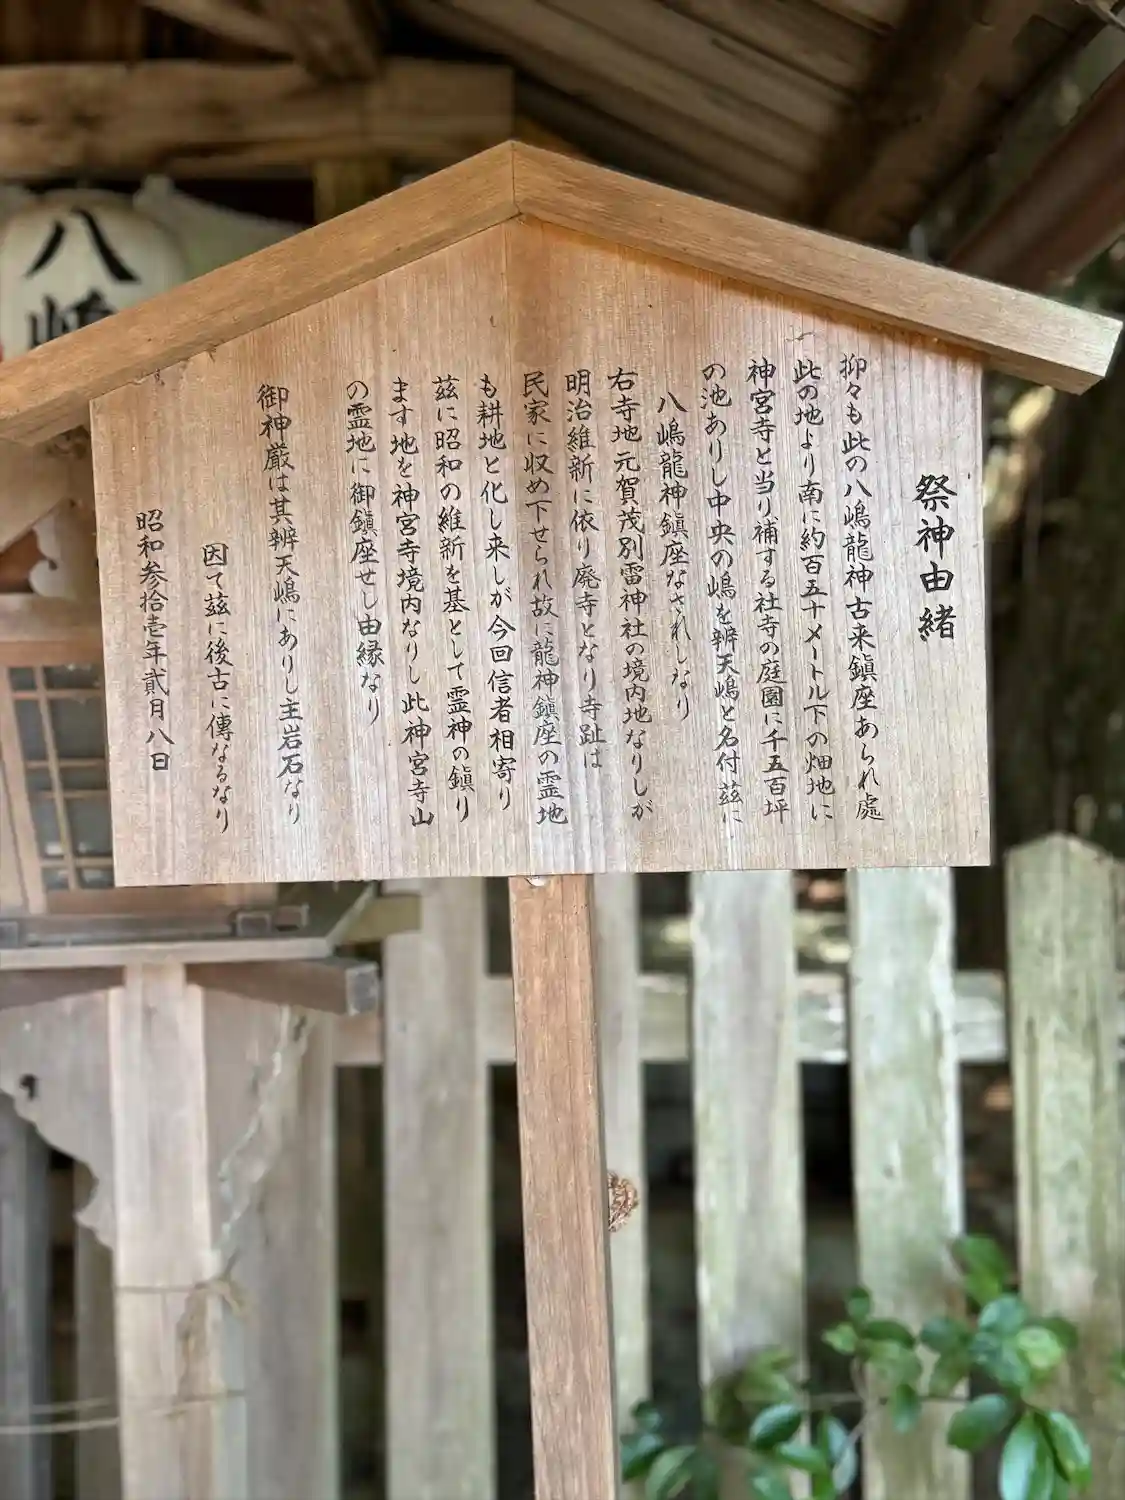 祭神由緒
抑々も此の八嶋龍神古来鎮座あられ處
此の地より南に約百五十メートル下の畑地に
神宮寺と当り補する社寺の庭園に千五百坪
の池ありし中央の嶋を辨天嶋と名付茲に
八嶋龍神鎮座なされしなり
右寺地元賀茂別雷神社の境内地なりしが
明治維新に依り廃寺となり寺趾は
民家に収め下せられ故に龍神鎮座の霊地
も耕地と化し来しが今回信者相寄り
茲に昭和の維新を基として霊神の鎮り
ます地を神宮寺境内なりし此神宮寺山
の霊地に御鎮座せし由縁なり
御神厳は其辨天嶋にありし主岩石なり
因て茲に後古に傳なるなり
昭和参拾壱年貳月八日
八嶋